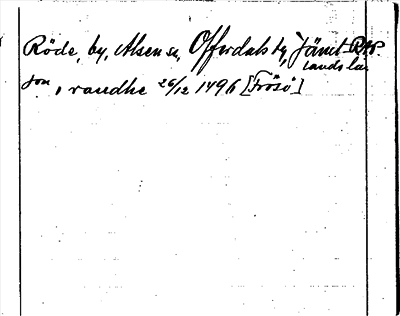 Röde, by, Alsens sn, Offerdals tg, Jämt- RAP.
lands län
Jon i raudhe 26/12 1496 [Frösö]